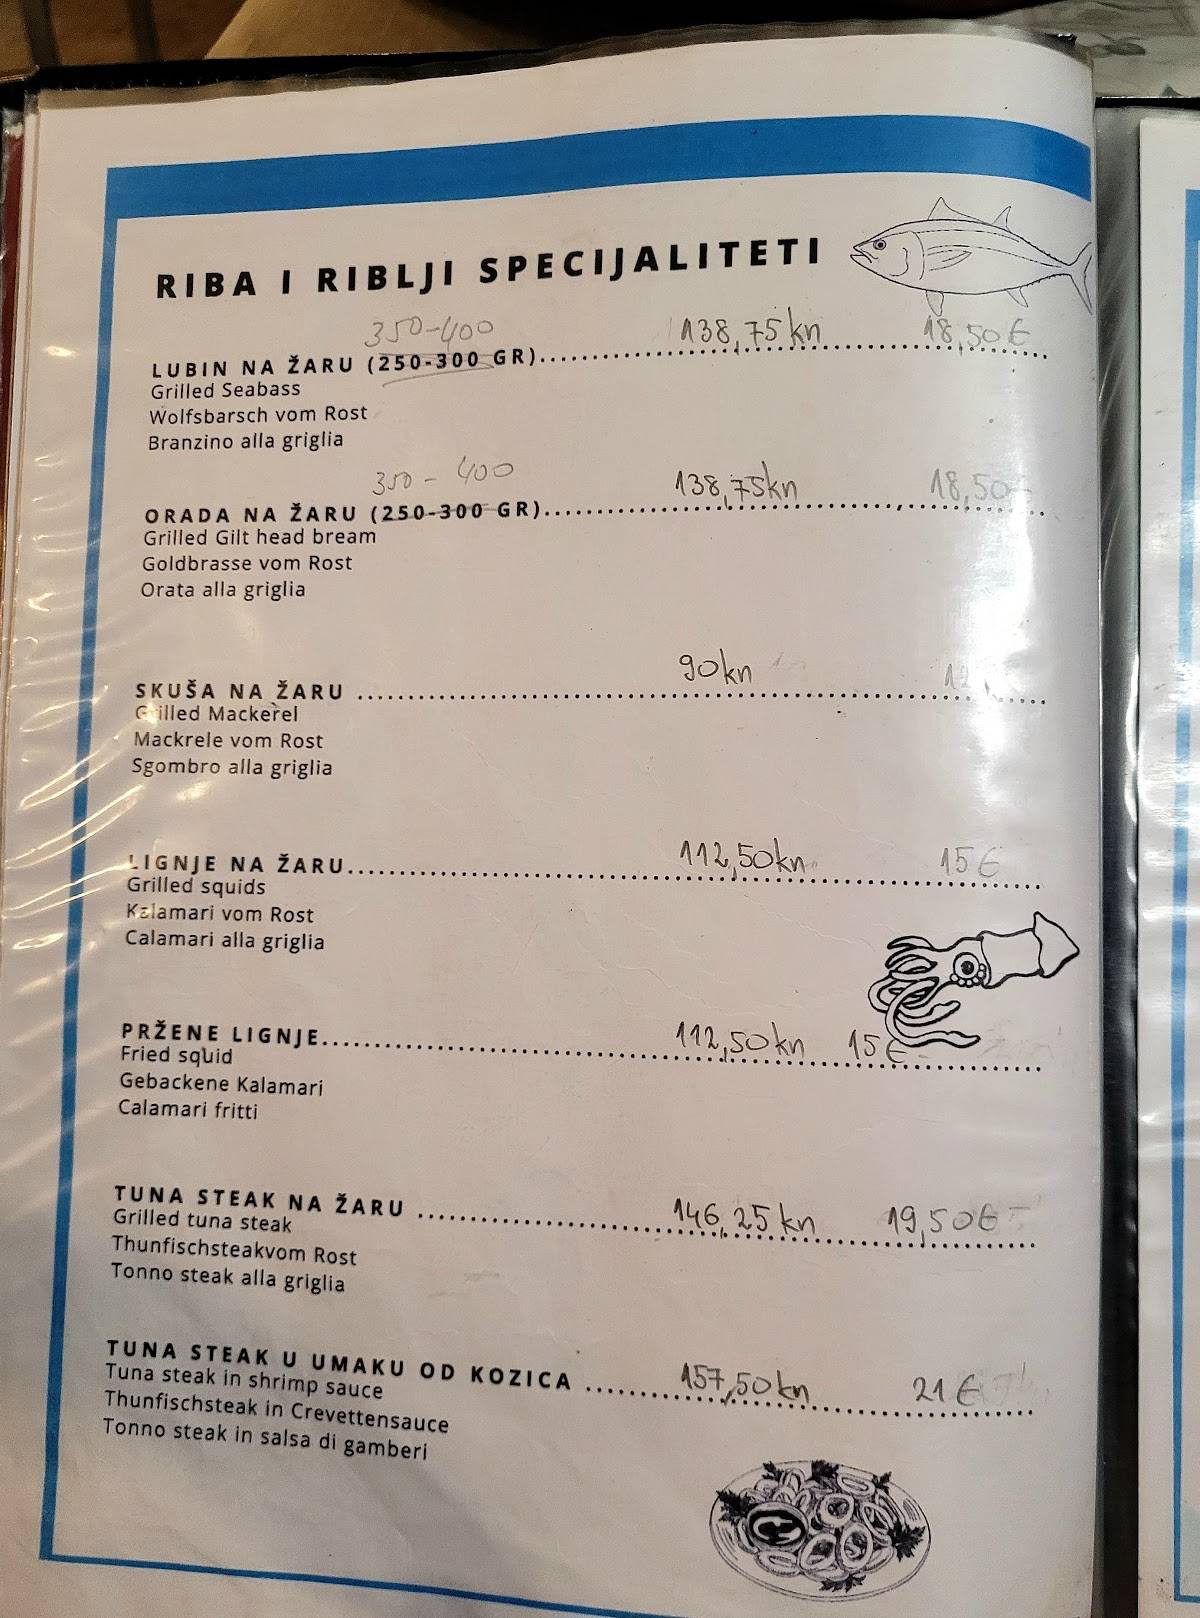 RIBA I RIBLJI SPECIJALITETI
350-400 138,75kn 18,50€
LUBIN NA ŽARU (250-300 GR)
Grilled Seabass
Wolfsbarsch vom Rost
Branzino alla griglia
350 - 400 138,75kn 18,50
ORADA NA ŽARU (250-300 GR)
Grilled Gilt head bream
Goldbrasse vom Rost
Orata alla griglia
90kn 12
SKUŠA NA ŽARU
Grilled Mackerel
Mackrele vom Rost
Sgombro alla griglia
112,50kn 15€
LIGNJE NA ŽARU
Grilled squids
Kalamari vom Rost
Calamari alla griglia
PRŽENE LIGNJE 112,50kn 15€
Fried squid
Gebackene Kalamari
Calamari fritti
TUNA STEAK NA ŽARU 146,25kn 19,50€
Grilled tuna steak
Thunfischsteakvom Rost
Tonno steak alla griglia
TUNA STEAK U UMAKU OD KOZICA 157,50kn 21€
Tuna steak in shrimp sauce
Thunfischsteak in Crevettensauce
Tonno steak in salsa di gamberi